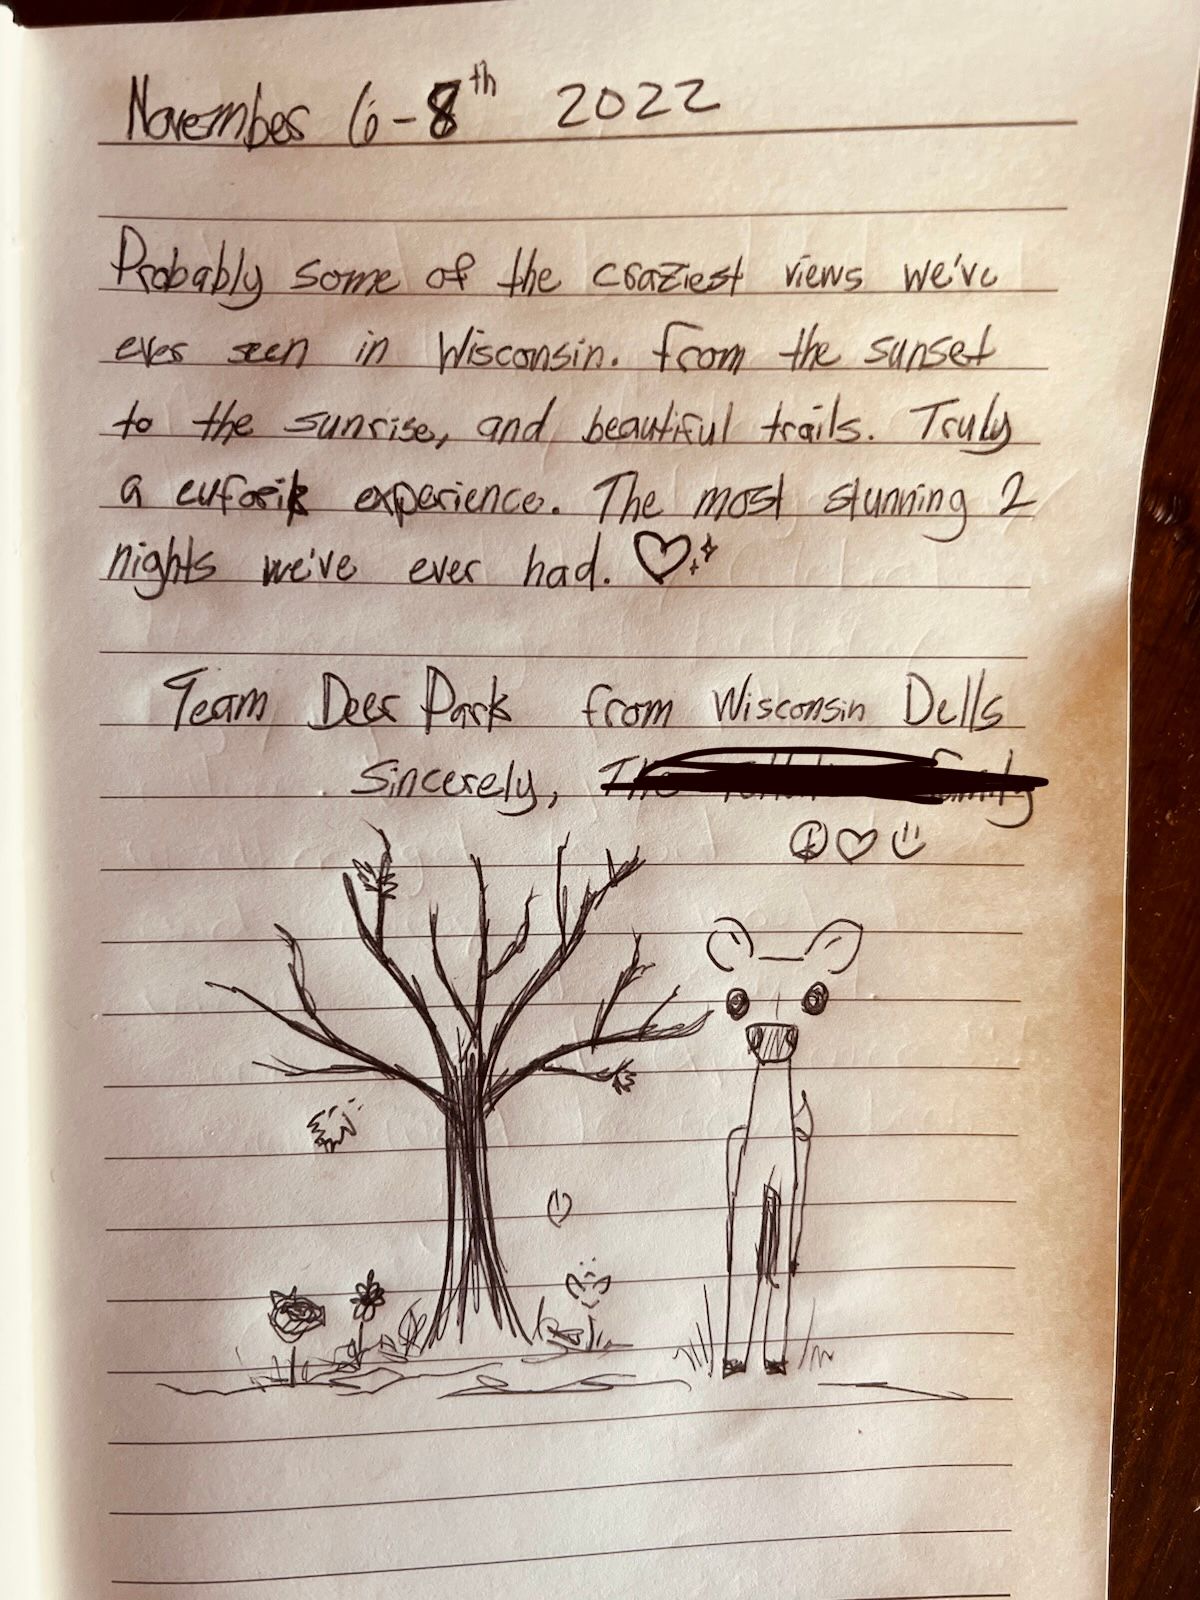 November 6-8th 2022
Probably some of the craziest views we've
ever seen in Wisconsin. From the sunset
to the sunrise, and beautiful trails. Truly
a euforik experience. The most stunning 2
nights we've ever had.
Team Deer Park from Wisconsin Dells
Sincerely, The family